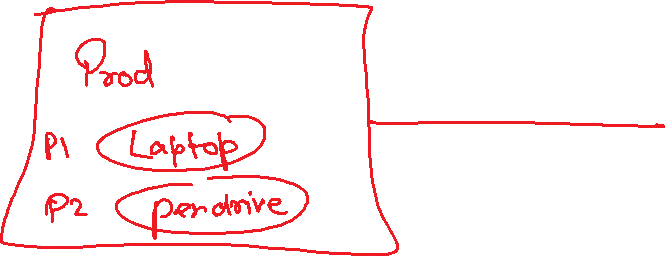 Prod
P1 Laptop
P2 pendrive